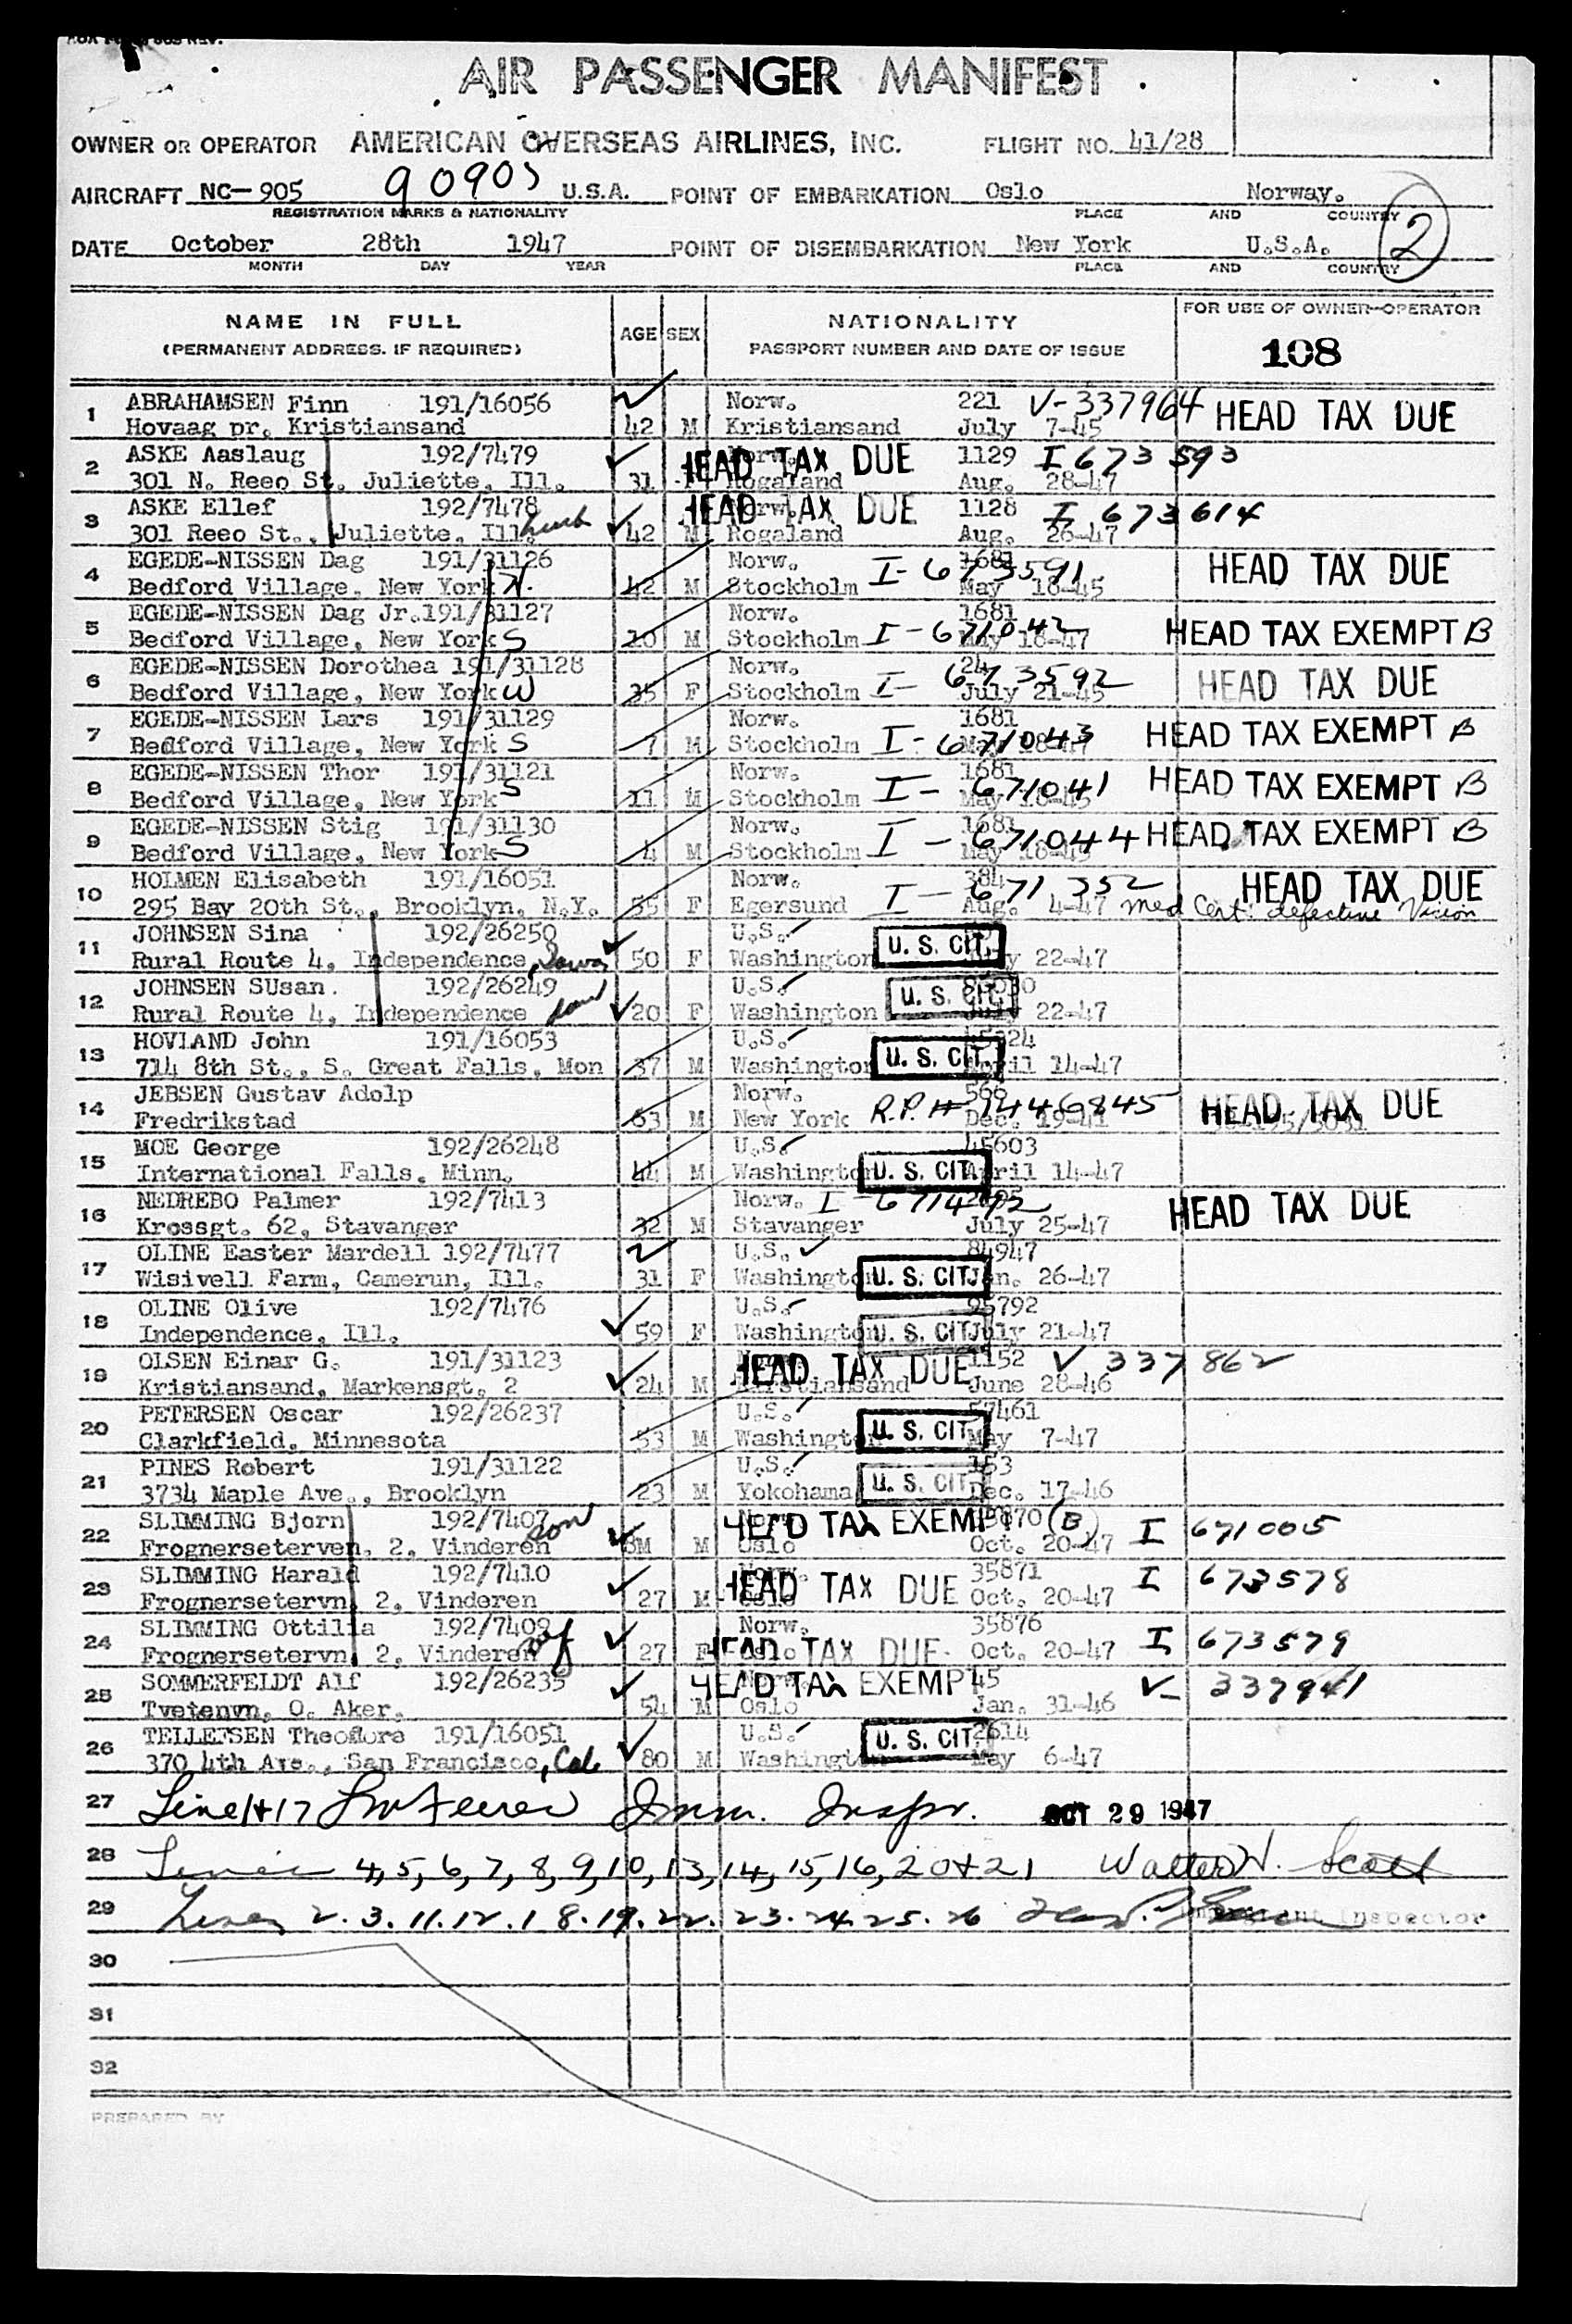 AIR PASSENGER MANIFEST
OWNER OR OPERATOR AMERICAN OVERSEAS AIRLINES, INC. FLIGHT NO. 41/28
AIRCRAFT NC-905 90905 U.S.A. POINT OF EMBARKATION Oslo Norway.
REGISTRATION MARKS & NATIONALITY PLACE AND COUNTRY
2
DATE October 28th 1947 POINT OF DISEMBARKATION New York U.S.A.
MONTH DAY YEAR PLACE AND COUNTRY
NAME IN FULL AGE SEX NATIONALITY FOR USE OF OWNER-OPERATOR
(PERMANENT ADDRESS. IF REQUIRED) PASSPORT NUMBER AND DATE OF ISSUE 108
1 ABRAHAMSEN Finn 191/16056 Norw. 221 V-337964 HEAD TAX DUE
Hovaag pr. Kristiansand 42 M Kristiansand July 7-45
2 ASKE Aaslaug 192/7479 HEAD TAX DUE 1129 I 673 593
301 N. Reeo St. Juliette, Ill. 31 Rogaland Aug. 28-47
3 ASKE Ellef 192/7478 HEAD TAX DUE 1128 I 673614
301 Reeo St., Juliette, Ill. husb 42 M Rogaland Aug. 26-47
4 EGEDE-NISSEN Dag 191/31126 Norw. 1681 I-673591 HEAD TAX DUE
Bedford Village, New York H. 42 M Stockholm May 18-45
5 EGEDE-NISSEN Dag Jr.191/31127 Norw. 1681 I-671042 HEAD TAX EXEMPT B
Bedford Village, New York S 10 M Stockholm May 18-47
6 EGEDE-NISSEN Dorothea 191/31128 Norw. 24 I-673592 HEAD TAX DUE
Bedford Village, New York W 35 F Stockholm July 21-45
7 EGEDE-NISSEN Lars 191/31129 Norw. 1681 I-671043 HEAD TAX EXEMPT B
Bedford Village, New York S 7 M Stockholm
8 EGEDE-NISSEN Thor 191/31121 Norw. 1681 I-671041 HEAD TAX EXEMPT B
Bedford Village, New York S 11 M Stockholm May 18-45
9 EGEDE-NISSEN Stig 191/31130 Norw. 1681 I-671044 HEAD TAX EXEMPT B
Bedford Village, New York S 4 M Stockholm May 18-45
10 HOLMEN Elisabeth 191/16051 Norw. 384 I-671 352 HEAD TAX DUE
295 Bay 20th St., Brooklyn, N.Y. 55 F Egersund Aug. 4-47 Med Cert: defective Vision
11 JOHNSEN Sina 192/26250 U.S. U. S. CIT.
Rural Route 4, Independence, Iowa 50 F Washington 22-47
12 JOHNSEN SUsan. 192/26249 U.S. U. S. CIT.
Rural Route 4, Independence 20 F Washington July 22-47
13 HOVLAND John 191/16053 U.S. U. S. CIT.
714 8th St., S. Great Falls, Mon 37 M Washington April 14-47
14 JEBSEN Gustav Adolp Norw. 566 R.P.# 1446845 HEAD TAX DUE
Fredrikstad 63 M New York Dec. 19-41
15 MOE George 192/26248 U.S. 45603
International Falls, Minn. 44 M Washington U. S. CIT. April 14-47
16 NEDREBO Palmer 192/7413 Norw. I-671492 HEAD TAX DUE
Krossgt. 62, Stavanger 32 M Stavanger July 25-47
17 OLINE Easter Mardell 192/7477 U.S. 84947
Wisivell Farm, Camerun, Ill. 31 F Washington U. S. CIT. Jan. 26-47
18 OLINE Olive 192/7476 U.S. 95792
Independence, Ill. 59 F Washington U. S. CIT. July 21-47
19 OLSEN Einar G. 191/31123 HEAD TAX DUE 1152 V 337 862
Kristiansand, Markensgt. 2 24 M Kirstiansand June 28-46
20 PETERSEN Oscar 192/26237 U.S. 57461
Clarkfield, Minnesota 53 M Washington U. S. CIT. May 7-47
21 PINES Robert 191/31122 U.S. 153
3734 Maple Ave., Brooklyn 23 M Yokohama U. S. CIT. Dec. 17-46
22 SLIMMING Bjorn 192/7407 son HEAD TAX EXEMPT (B) I 671005
Frognerseterven, 2, Vinderen 8M M Oslo Oct. 20-47
23 SLIMMING Harald 192/7410 HEAD TAX DUE 35871 I 673578
Frognersetervn, 2, Vinderen 27 M Oslo Oct. 20-47
24 SLIMMING Ottilia 192/7409 Norw. 35876 I 673579
Frognersetervn, 2, Vinderen wf 27 F Oslo HEAD TAX DUE Oct. 20-47
25 SOMMERFELDT Alf 192/26235 HEAD TAX EXEMPT 45 V- 337941
Tvetenvn, O. Aker. 54 M Oslo Jan. 31-46
26 TELLEFSEN Theodore 191/16051 U.S. U. S. CIT. 2614
370 4th Ave., San Francisco, Cal 80 M Washington May 6-47
27 Line 1+17 Imm. Inspr. OCT 29 1947
28 Lines 4,5,6,7,8,9,10,13,14,15,16,20+21 Walter H. Scott
29 Lines 2.3.11.12.18.19.22.23.24.25.26 Immigrant Inspector
30
31
32
PREPARED BY